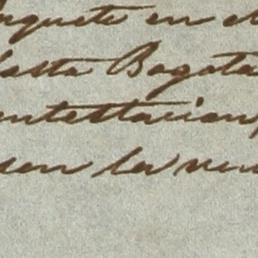 nquete en el
hasta Bogota
ontestacion
en la ven